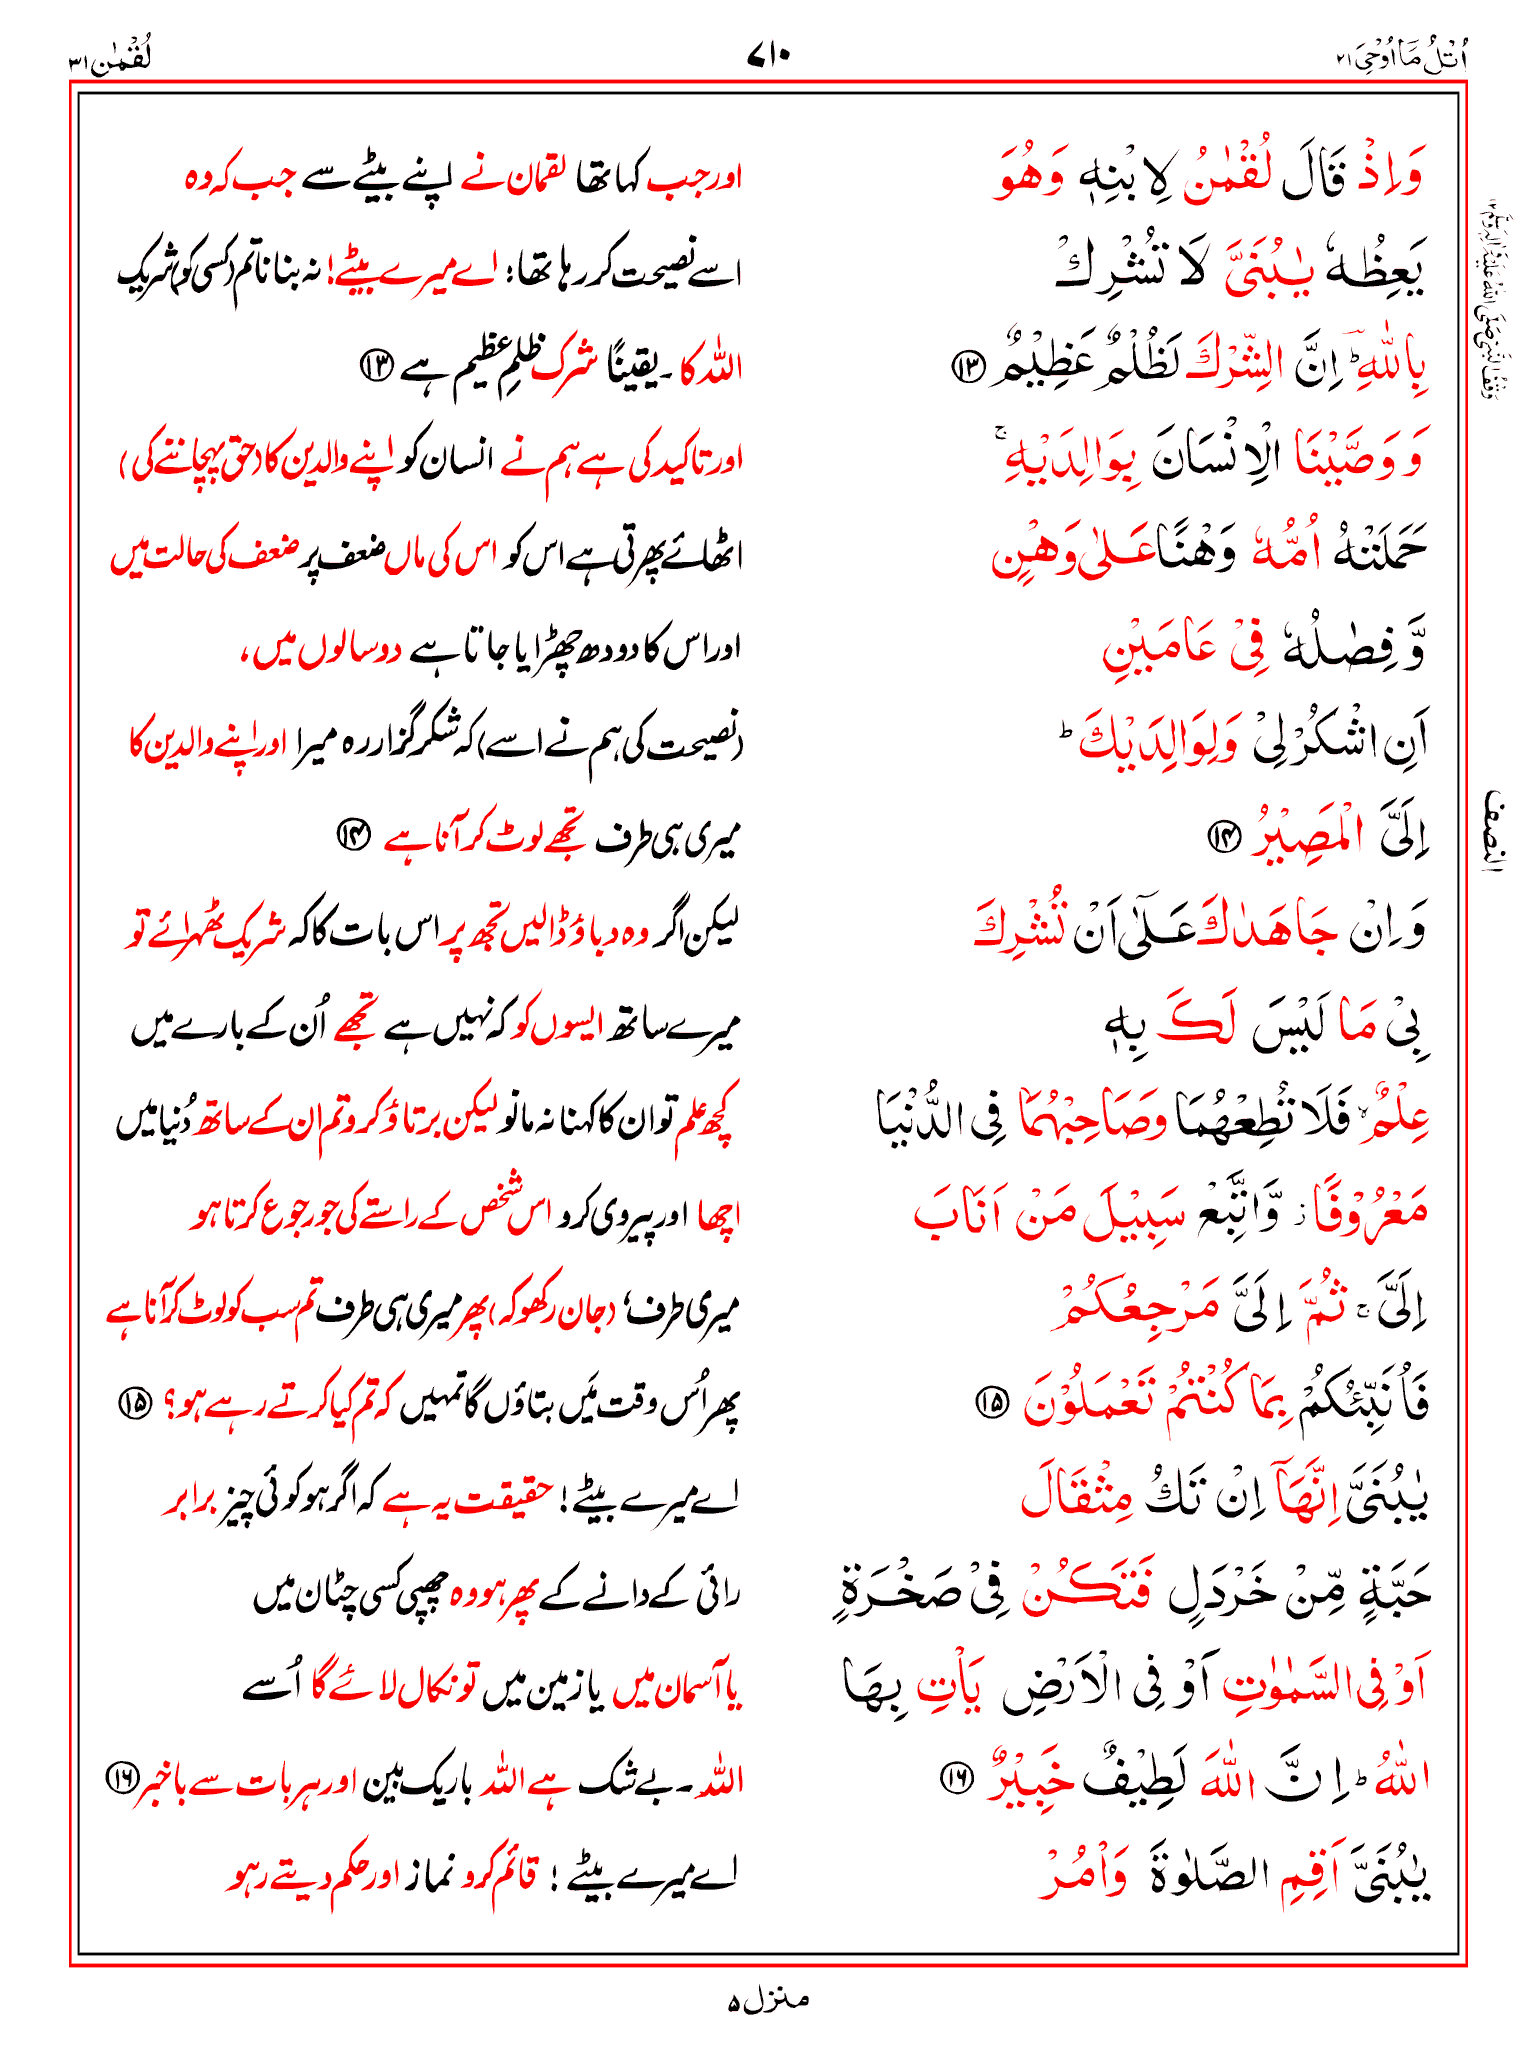 اُتْلُ مَآ اُوْحِیَ ۲۱
۷۱۰
لُقْمٰن ۳۱
وَاِذْ قَالَ لُقْمٰنُ لِابْنِهٖ وَهُوَ
اور جب کہا تھا لقمان نے اپنے بیٹے سے جب کہ وہ
یَعِظُهٗ یٰبُنَیَّ لَا تُشْرِكْ
اسے نصیحت کر رہا تھا: اے میرے بیٹے! نہ بنانا تم (کسی کو) شریک
بِاللّٰهِ ؕ اِنَّ الشِّرْكَ لَظُلْمٌ عَظِیْمٌ ۱۳
اللہ کا۔ یقیناً شرک ظلمِ عظیم ہے ۱۳
وَ وَصَّیْنَا الْاِنْسَانَ بِوَالِدَیْهِ ۚ
اور تاکید کی ہے ہم نے انسان کو اپنے والدین کا (حق پہچاننے کی)
حَمَلَتْهُ اُمُّهٗ وَهْنًا عَلٰی وَهْنٍ
اٹھائے پھرتی ہے اس کو اس کی ماں ضعف پر ضعف کی حالت میں
وَّ فِصٰلُهٗ فِیْ عَامَیْنِ
اور اس کا دودھ چھڑایا جاتا ہے دو سالوں میں،
اَنِ اشْكُرْ لِیْ وَلِوَالِدَیْكَ ؕ
(نصیحت کی ہم نے اسے) کہ شکر گزار رہ میرا اور اپنے والدین کا
اِلَیَّ الْمَصِیْرُ ۱۴
میری ہی طرف تجھے لوٹ کر آنا ہے ۱۴
وَ اِنْ جَاهَدٰكَ عَلٰۤی اَنْ تُشْرِكَ
لیکن اگر وہ دباؤ ڈالیں تجھ پر اس بات کا کہ شریک ٹھہرائے تو
بِیْ مَا لَیْسَ لَكَ بِهٖ
میرے ساتھ ایسوں کو کہ نہیں ہے تجھے اُن کے بارے میں
عِلْمٌ ۙ فَلَا تُطِعْهُمَا وَصَاحِبْهُمَا فِی الدُّنْیَا
کچھ علم تو ان کا کہنا نہ مانو لیکن برتاؤ کرو تم ان کے ساتھ دُنیا میں
مَعْرُوْفًا ؗ وَّاتَّبِعْ سَبِیْلَ مَنْ اَنَابَ
اچھا اور پیروی کرو اس شخص کے راستے کی جو رجوع کرتا ہو
اِلَیَّ ۚ ثُمَّ اِلَیَّ مَرْجِعُكُمْ
میری طرف، (جان رکھو کہ) پھر میری ہی طرف تم سب کو لوٹ کر آنا ہے
فَاُنَبِّئُكُمْ بِمَا كُنْتُمْ تَعْمَلُوْنَ ۱۵
پھر اُس وقت مَیں بتاؤں گا تمہیں کہ تم کیا کرتے رہے ہو؟ ۱۵
یٰبُنَیَّ اِنَّهَاۤ اِنْ تَكُ مِثْقَالَ
اے میرے بیٹے! حقیقت یہ ہے کہ اگر ہو کوئی چیز برابر
حَبَّةٍ مِّنْ خَرْدَلٍ فَتَكُنْ فِیْ صَخْرَةٍ
رائی کے دانے کے پھر ہو وہ چھپی کسی چٹان میں
اَوْ فِی السَّمٰوٰتِ اَوْ فِی الْاَرْضِ یَاْتِ بِهَا
یا آسمان میں یا زمین میں تو نکال لائے گا اُسے
اللّٰهُ ؕ اِنَّ اللّٰهَ لَطِیْفٌ خَبِیْرٌ ۱۶
اللہ۔ بے شک ہے اللہ باریک بین اور ہر بات سے باخبر ۱۶
یٰبُنَیَّ اَقِمِ الصَّلٰوةَ وَاْمُرْ
اے میرے بیٹے! قائم کرو نماز اور حکم دیتے رہو
وَقْفُ النَّبِیِّ صَلَّی اللّٰهُ عَلَیْهِ وَاٰلِهٖ وَسَلَّمَ ۱۲
النصف
منزل ۵